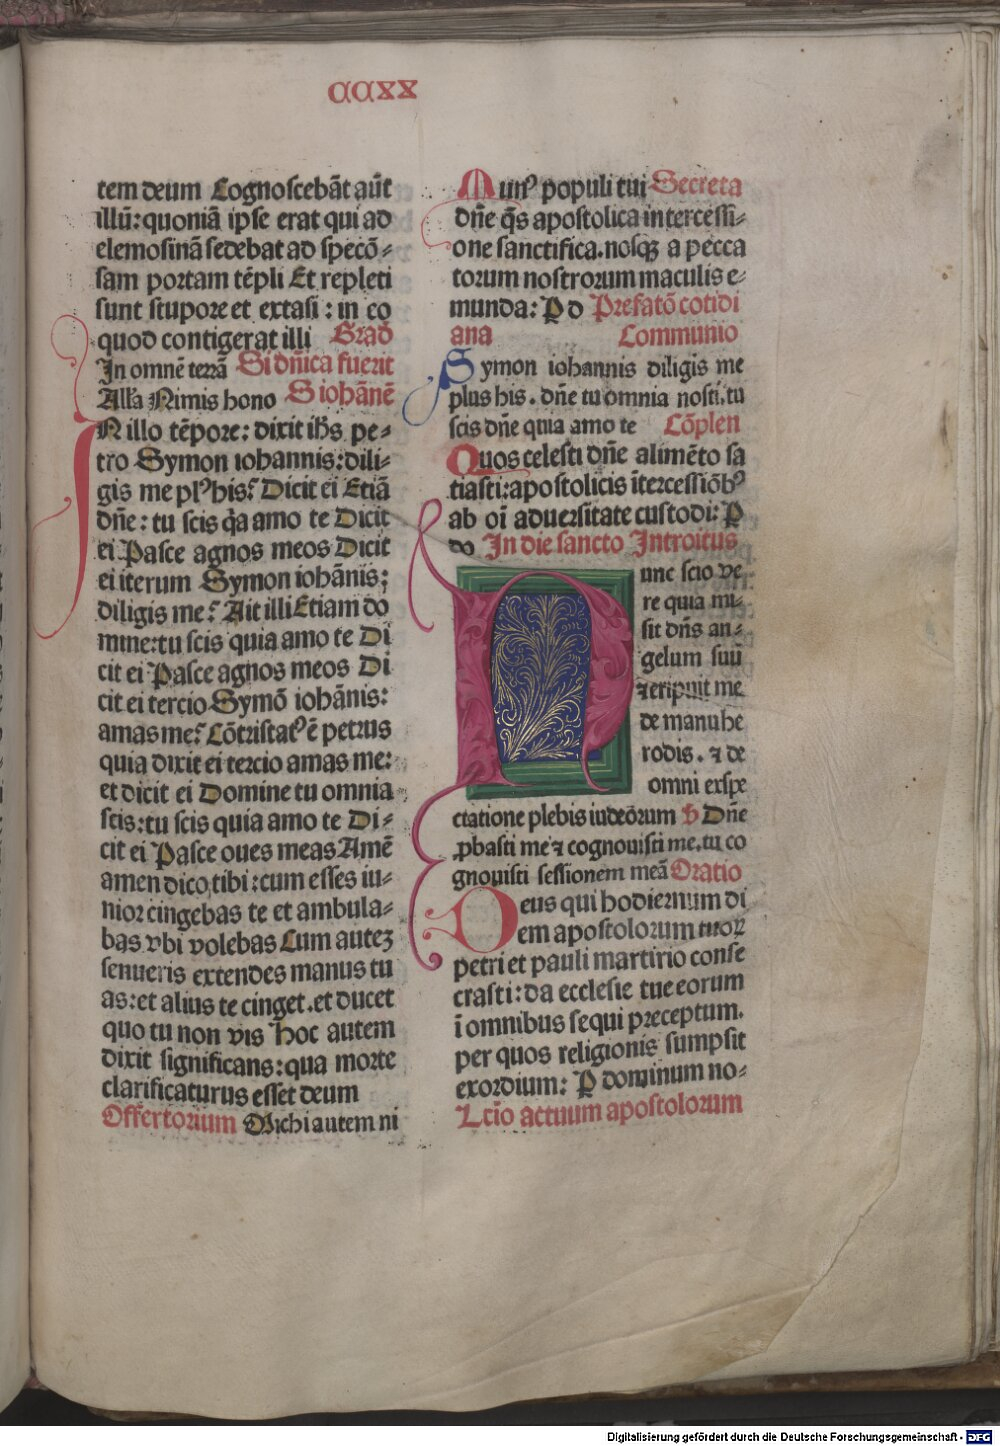 CCXX
tem deum Cognoscebāt aūt
illū: quoniā ipse erat qui ad
elemosinā sedebat ad specō-
sam portam tēpli Et repleti
sunt stupore et extasi: in eo
quod contigerat illi Grad
In omnē terrā Si dn̄ica fuerit
Allā Nimis hono S iohānē
IN illo tēpore: dixit ih̄s pe-
tro Symon iohannis: dili-
gis me plꝰ his? Dicit ei Etiā
dn̄e: tu scis q̄a amo te Dicit
ei Pasce agnos meos Dicit
ei iterum Symon iohānis:
diligis me? Ait illi Etiam do
mine: tu scis quia amo te Di
cit ei Pasce agnos meos Di
cit ei tercio Symō iohānis:
amas me? Cōtristatꝰ ē petrus
quia dixit ei tercio amas me:
et dicit ei Domine tu omnia
scis: tu scis quia amo te Di-
cit ei Pasce oues meas Amē
amen dico tibi: cum esses iu-
nior cingebas te et ambula-
bas vbi volebas Cum auteꝫ
senueris extendes manus tu
as: et alius te cinget. et ducet
quo tu non vis Hoc autem
dixit significans: qua morte
clarificaturus esset deum
Offertorium Michi autem ni
Munꝰ populi tui Secreta
dn̄e q̄s apostolica intercessi-
one sanctifica. nosqꝫ a pecca
torum nostrorum maculis e-
munda: P do Prefatō cotidi
ana Communio
Symon iohannis diligis me
plus his. dn̄e tu omnia nosti. tu
scis dn̄e quia amo te Cōplen
Quos celesti dn̄e alimēto sa
tiasti: apostolicis ītercessiōbꝰ
ab oī aduersitate custodi: P
do In die sancto Introitus
Nunc scio ve
re quia mi-
sit dn̄s an-
gelum suū
⁊ eripuit me
de manu he
rodis. ⁊ de
omni exspe
ctatione plebis iudeōrum v Dn̄e
ꝓbasti me ⁊ cognouisti me. tu co
gnouisti sessionem meā Oratio
Deus qui hodiernum di
em apostolorum tuoꝝ
petri et pauli martirio conse
crasti: da ecclesie tue eorum
ī omnibus sequi preceptum.
per quos religionis sumpsit
exordium: P dominum no-
Lcīo actuum apostolorum
Digitalisierung gefördert durch die Deutsche Forschungsgemeinschaft - DFG